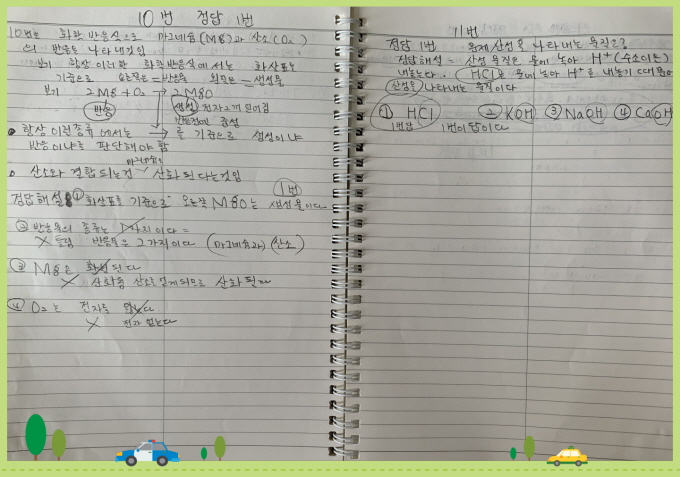 10번 정답 1번
10번은 화학 반응식으로 마그네슘(Mg)과 산소(O₂)
의 반응을 나타낸것임
보기 항상 이러한 화학반응식에서는 화살표는
기준으로 왼쪽은 = 반응물 오른쪽은 = 생성물
보기 2Mg + O₂ → 2MgO
반응 생성
항상 이런종류 에서는 → 를 기준으로 생성이냐
반응이냐를 판단해야 함
마그네슘은
산소와 결합 되는것 산화 된다는것임
1번
정답해설 ① 화살표를 기준으로 오른쪽 MgO는 생성물이다
② 반응물의 종류는 이다 =
X 틀림 반응물은 2가지이다 (마그네슘과) (산소)
③ Mg은 환원된다
X 산소를 얻게되므로 산화된다
④ O₂는 전자를 잃는다
X 전자 얻는다
11번
정답 1번 문제 산성을 나타내는 물질은?
정답해설 = 산성 물질은 물에 녹아 H⁺(수소이온)
내놓는다. HCl은 물에 녹아 H⁺를 내놓기 때문에
산성을 나타내는 물질이다
① HCl ② KOH ③ NaOH ④ CaOH
1번답 1번이답이다